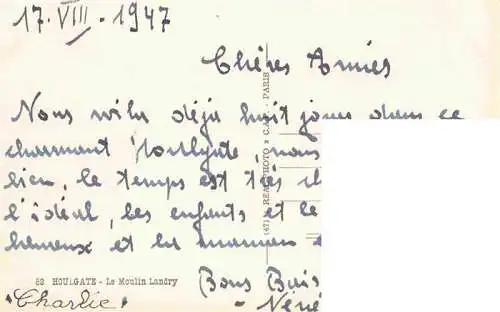 17·VIII·1947
Chères Amies
Nous voilà déjà huit jours dans ce
charmant Houlgate, nous
bien, le temps est très
l'idéal, les enfants et le
heureux et la maman
Bons Bais
- Néné
83 HOULGATE - Le Moulin Landry
Charlie
(67) REAL-PHOTO • C.A.P. - PARIS